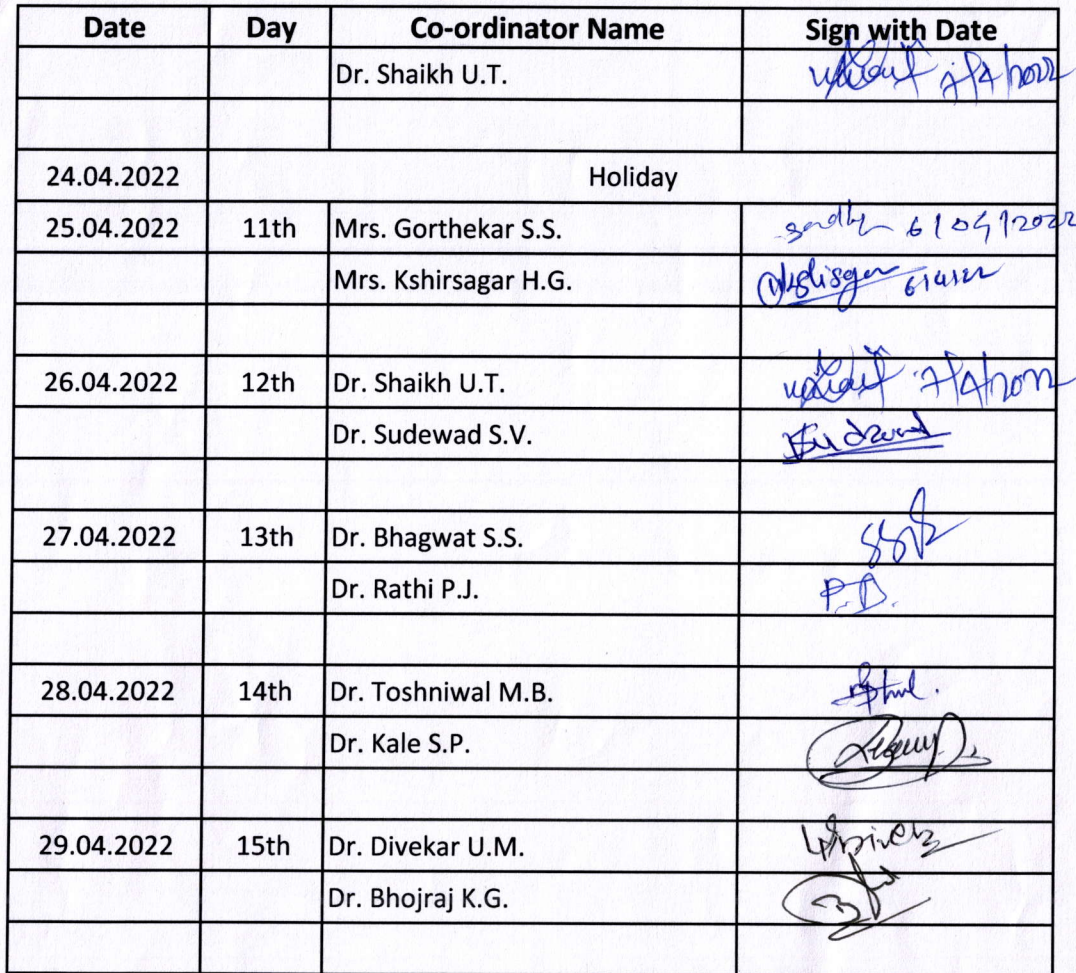 Date Day Co-ordinator Name Sign with Date
Dr. Shaikh U.T. 7/4/2022
24.04.2022 Holiday
25.04.2022 11th Mrs. Gorthekar S.S. 6/04/2022
Mrs. Kshirsagar H.G.
26.04.2022 12th Dr. Shaikh U.T. 7/4/2022
Dr. Sudewad S.V.
27.04.2022 13th Dr. Bhagwat S.S.
Dr. Rathi P.J.
28.04.2022 14th Dr. Toshniwal M.B.
Dr. Kale S.P.
29.04.2022 15th Dr. Divekar U.M.
Dr. Bhojraj K.G.